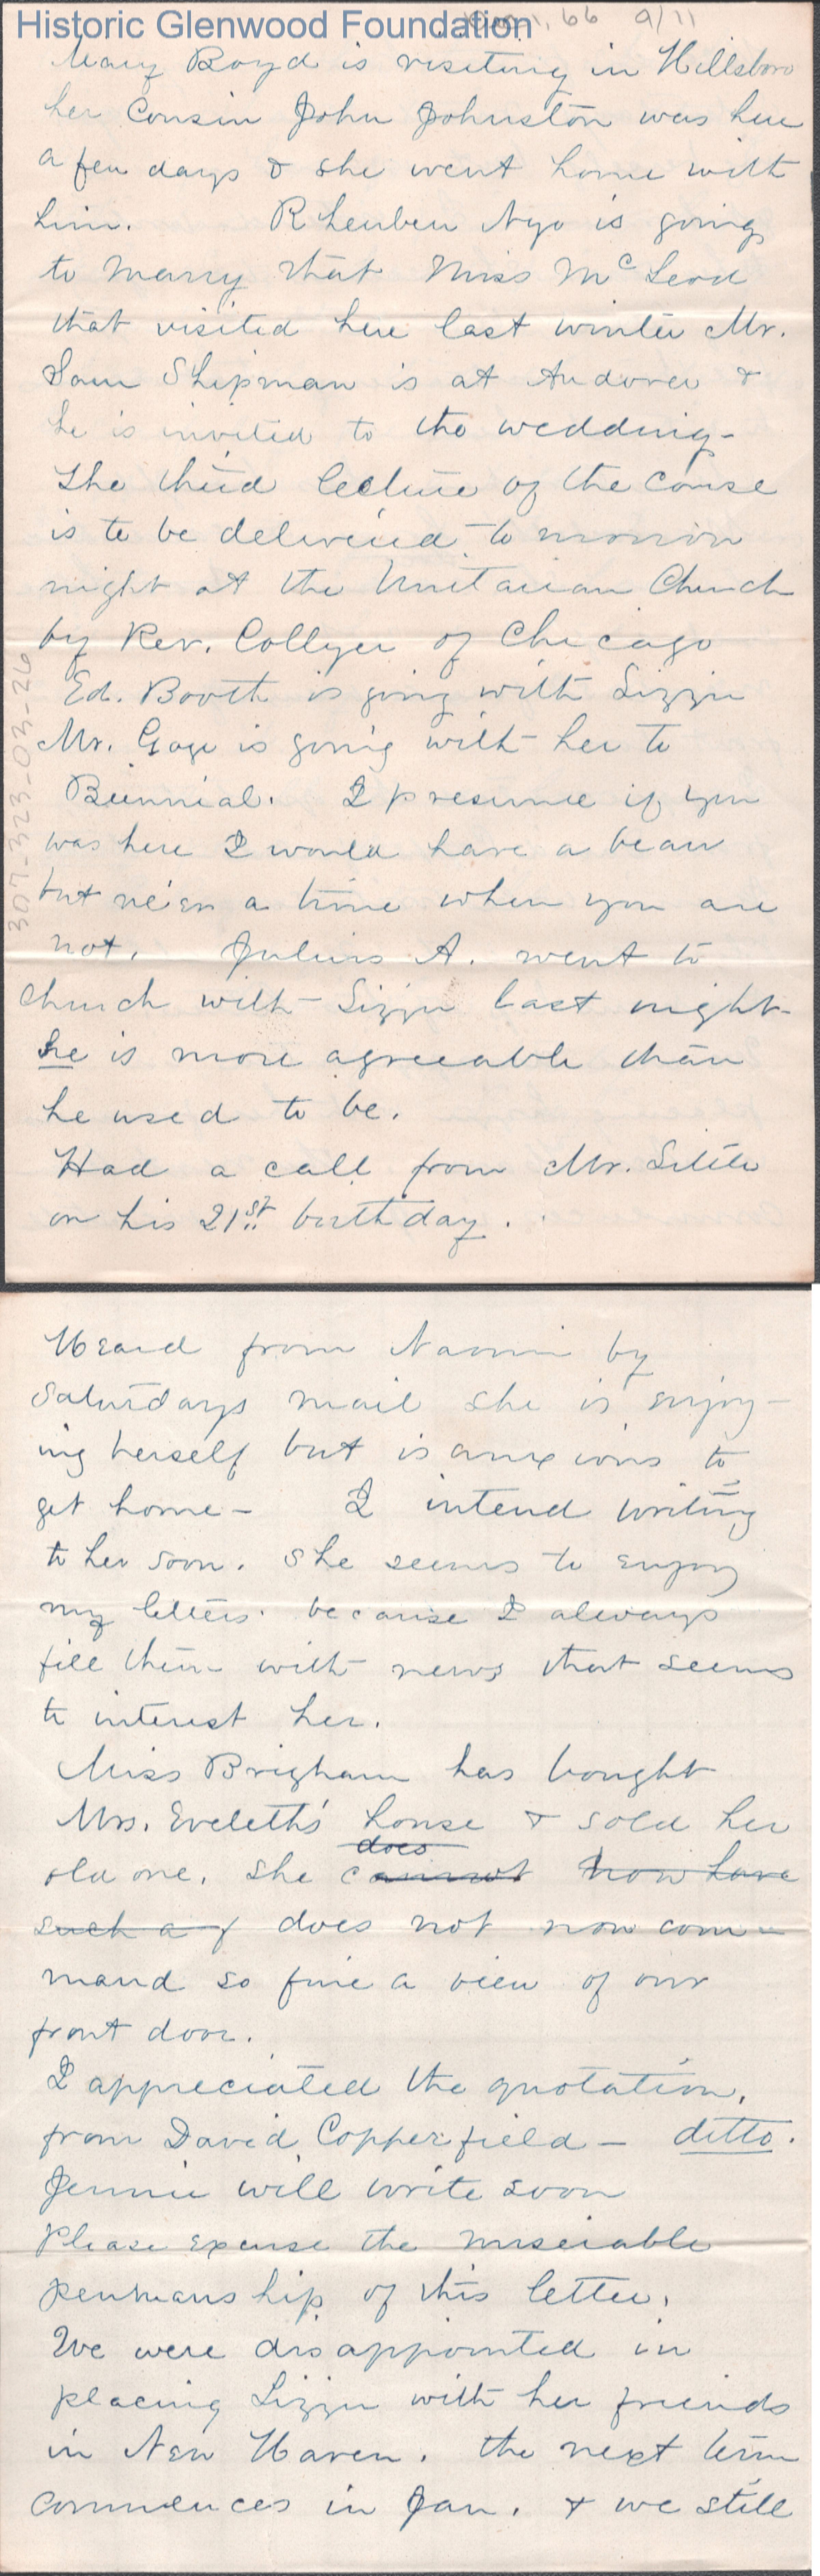 Historic Glenwood Foundation
1, 66 9/11
Mary Boyd is visiting in Hillsboro
her Cousin John Johnston was here
a few days & she went home with
him. Rheuben Nye is going
to marry that Miss McLeod
that visited here last winter Mr.
Sam Shipman is at Andover &
he is invited to the wedding-
The third lecture of the Course
is to be delivered to morrow
night at the Unitarian Church
by Rev. Collyer of Chicago
Ed. Booth is going with Lizzie
Mr. Gage is going with her to
Biennial. I presume if you
was here I would have a beau
but ne'er a time when you are
not. Julius A. went to
church with Lizzie last night-
he is more agreeable than
he used to be.
Had a call from Mr. Little
on his 21st birthday.
307-323-03-26
Heard from Naomi by
Saturdays mail she is enjoy-
ing herself but is anxious to
get home- I intend writing
to her soon. She seems to enjoy
my letters because I always
fill them with news that seems
to interest her.
Miss Brigham has bought
Mrs. Eveleth's house & sold her
does
old one. She cannot now have
such a f does not now com-
mand so fine a view of our
front door.
I appreciated the quotation,
from David Copperfield- ditto.
Jennie will write soon
Please excuse the miserable
penmanship of this letter.
We were disappointed in
placing Lizzie with her friends
in New Haven. The next term
commences in Jan. & we still